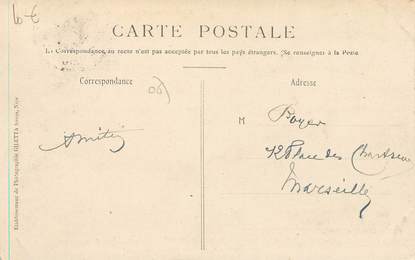 CARTE POSTALE
La Correspondance au recto n'est pas acceptée par tous les pays étrangers. (Se renseigner à la Poste
Correspondance
Adresse
(06)
M
Amitiés
12 Place des Chartreux
Marseille
Etablissement de Photographie GILETTA frères, Nice